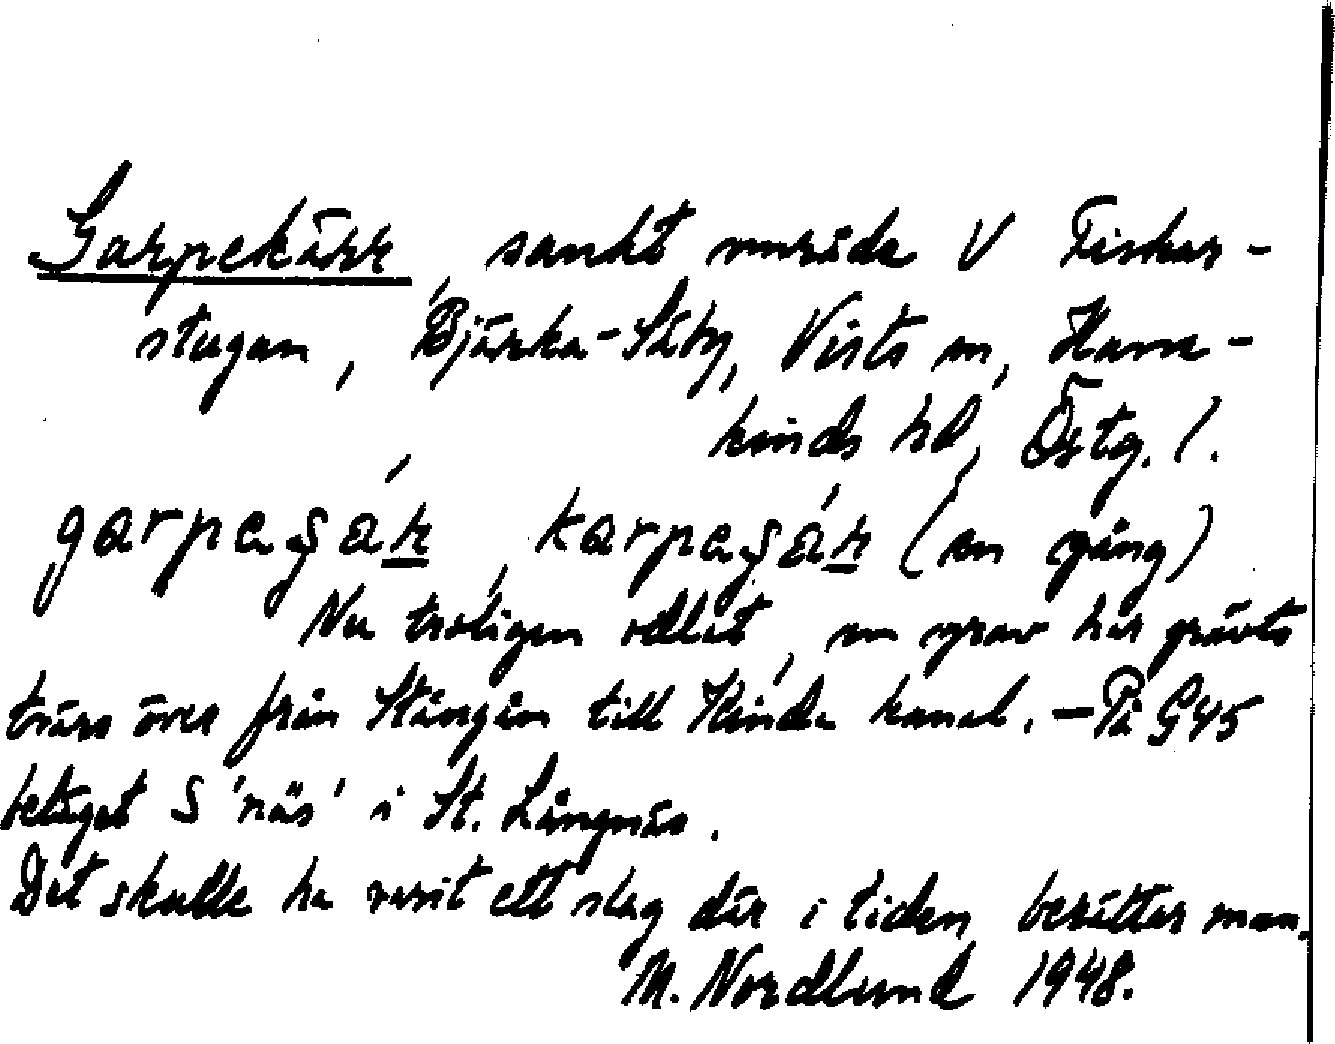 Garpekärr, sankt område V Fiskar-
stugan, Bjärka-Säby, Vists sn, Hane-
kinds hd, Östg. l.
garpeşár, karpeşár (en gång)
Nu troligen odlat, en grav har grävts
tvärs över från Stångån till Kinda kanal. – På G45
beläget S 'näs' i St. Långnäs.
Det skulle ha varit ett slag där i tiden, berättar man.
M. Nordlund 1948.